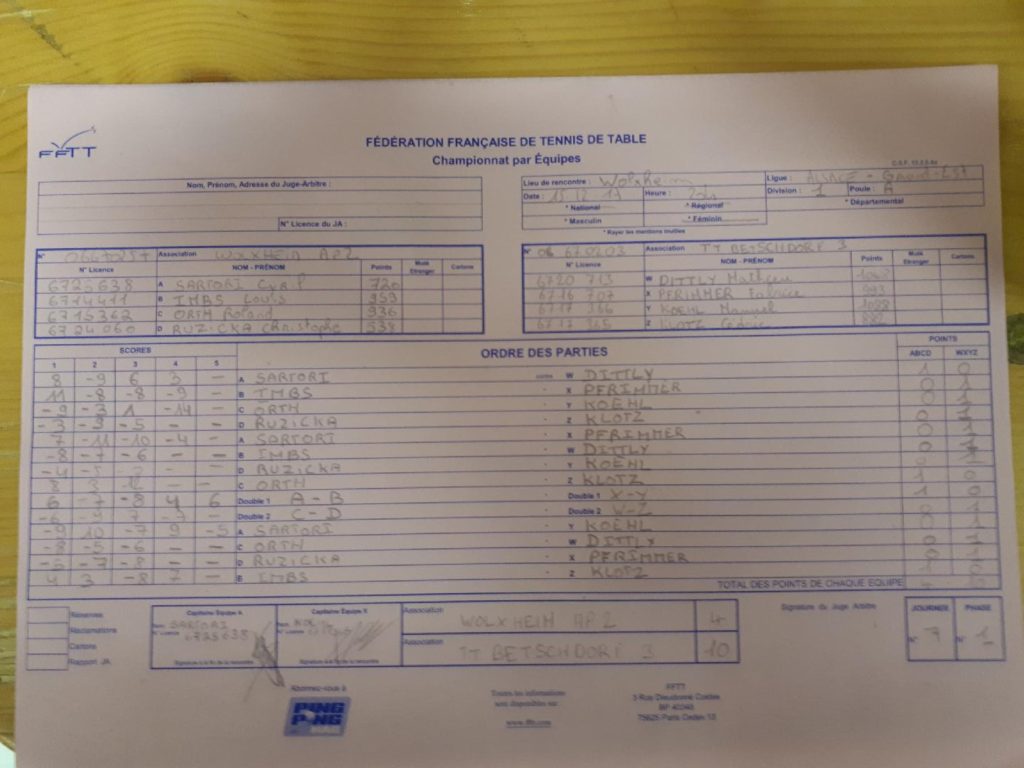 FFTT
FÉDÉRATION FRANÇAISE DE TENNIS DE TABLE
Championnat par Équipes
Nom, Prénom, Adresse du Juge-Arbitre :
N° Licence du JA :
Lieu de rencontre : Wolxheim
Ligue : ALSACE - Grand-EST
Date : 12 Heure : 20h Division : 1 Poule : A
* National * Régional * Départemental
* Masculin * Féminin
* Rayer les mentions inutiles
N° Association WOLXHEIM AP2
N° Licence NOM - PRÉNOM Points Muté Etranger Cartons
6725638 A SARTORI Cyril 720
6714411 B IMBS Louis 959
6715362 C ORTH Roland 936
6724060 D RUZICKA Christophe 538
N° 06 670203 Association TT BETSCHDORF 3
N° Licence NOM - PRÉNOM Points Muté Etranger Cartons
6720 713 W DITTLY
6716 707 X PFRIMMER 993
6717 366 Y KOEHL
6717 365 Z KLOTZ
SCORES ORDRE DES PARTIES POINTS
1 2 3 4 5 ABCD WXYZ
8 -9 6 3 - A SARTORI contre W DITTLY 1 0
11 -8 -8 -9 - B IMBS X PFRIMMER 0 1
-9 -3 1 -14 - C ORTH Y KOEHL 0 1
-3 -3 -5 - - D RUZICKA Z KLOTZ 0 1
7 -11 -10 -4 - A SARTORI X PFRIMMER 0 1
-8 -7 -6 - - B IMBS W DITTLY 0 1
-4 -5 - - D RUZICKA Y KOEHL
3 3 12 - - C ORTH Z KLOTZ 1 0
6 -7 -8 4 6 Double 1 A - B Double 1 X-Y 1 0
Double 2 C - D Double 2 W-Z 0 1
-9 10 -7 9 -5 A SARTORI Y KOEHL 0 1
-8 -5 -6 - - C ORTH W DITTLY 0 1
-5 -7 -8 - - D RUZICKA X PFRIMMER 0 1
4 3 -8 7 - B IMBS Z KLOTZ 1 0
TOTAL DES POINTS DE CHAQUE EQUIPE
Réserves
Réclamations
Cartons
Rapport JA
Capitaine Équipe A
SARTORI
N° Licence 6725638
Signature à la fin de la rencontre
Capitaine Équipe X
Signature à la fin de la rencontre
Association WOLXHEIM AP2 4
Association TT BETSCHDORF 3 10
Signature du Juge Arbitre
JOURNEE PHASE
N° 7 N° 1
Abonnez-vous à
PING PONG MAG
Toutes les informations
sont disponibles sur
www.fftt.com
FFTT
3 Rue Dieudonné Costes
BP 40348
75625 Paris Cedex 13